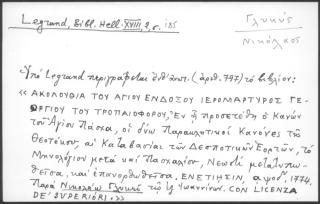 Legrand, Bibl. Hell. XVIII, 2, σ. 185
Γλυκύς
Νικόλαος
Ὑπὸ Legrand περιγράφεται ἀνθ' ἅπαξ. (ἀριθ. 797) τὸ βιβλίον:
«ΑΚΟΛΟΥΘΙΑ ΤΟΥ ΑΓΙΟΥ ΕΝΔΟΞΟΥ ΙΕΡΟΜΑΡΤΥΡΟΣ ΓΕ-
ΩΡΓΙΟΥ ΤΟΥ ΤΡΟΠΑΙΟΦΟΡΟΥ, Ἐν ᾗ προσετέθη ὁ Κανὼν
τοῦ Ἁγίου Πάσχα, οἱ δύω Παρακλητικοὶ Κανόνες τῆς
Θεοτόκου, αἱ Καταβασίαι τῶν Δεσποτικῶν Ἑορτῶν, τὸ
Μηνολόγιον μετὰ καὶ Πασχαλίου, Νεωστὶ μετατυπω-
θεῖσα, καὶ ἐπανορθωθεῖσα. ΕΝΕΤΙΗΣΙΝ, αψοδ', 1774.
Παρὰ Νικολάῳ Γλυκεῖ τῷ ἐξ Ἰωαννίνων. CON LICENZA
DE' SUPERIORI.»